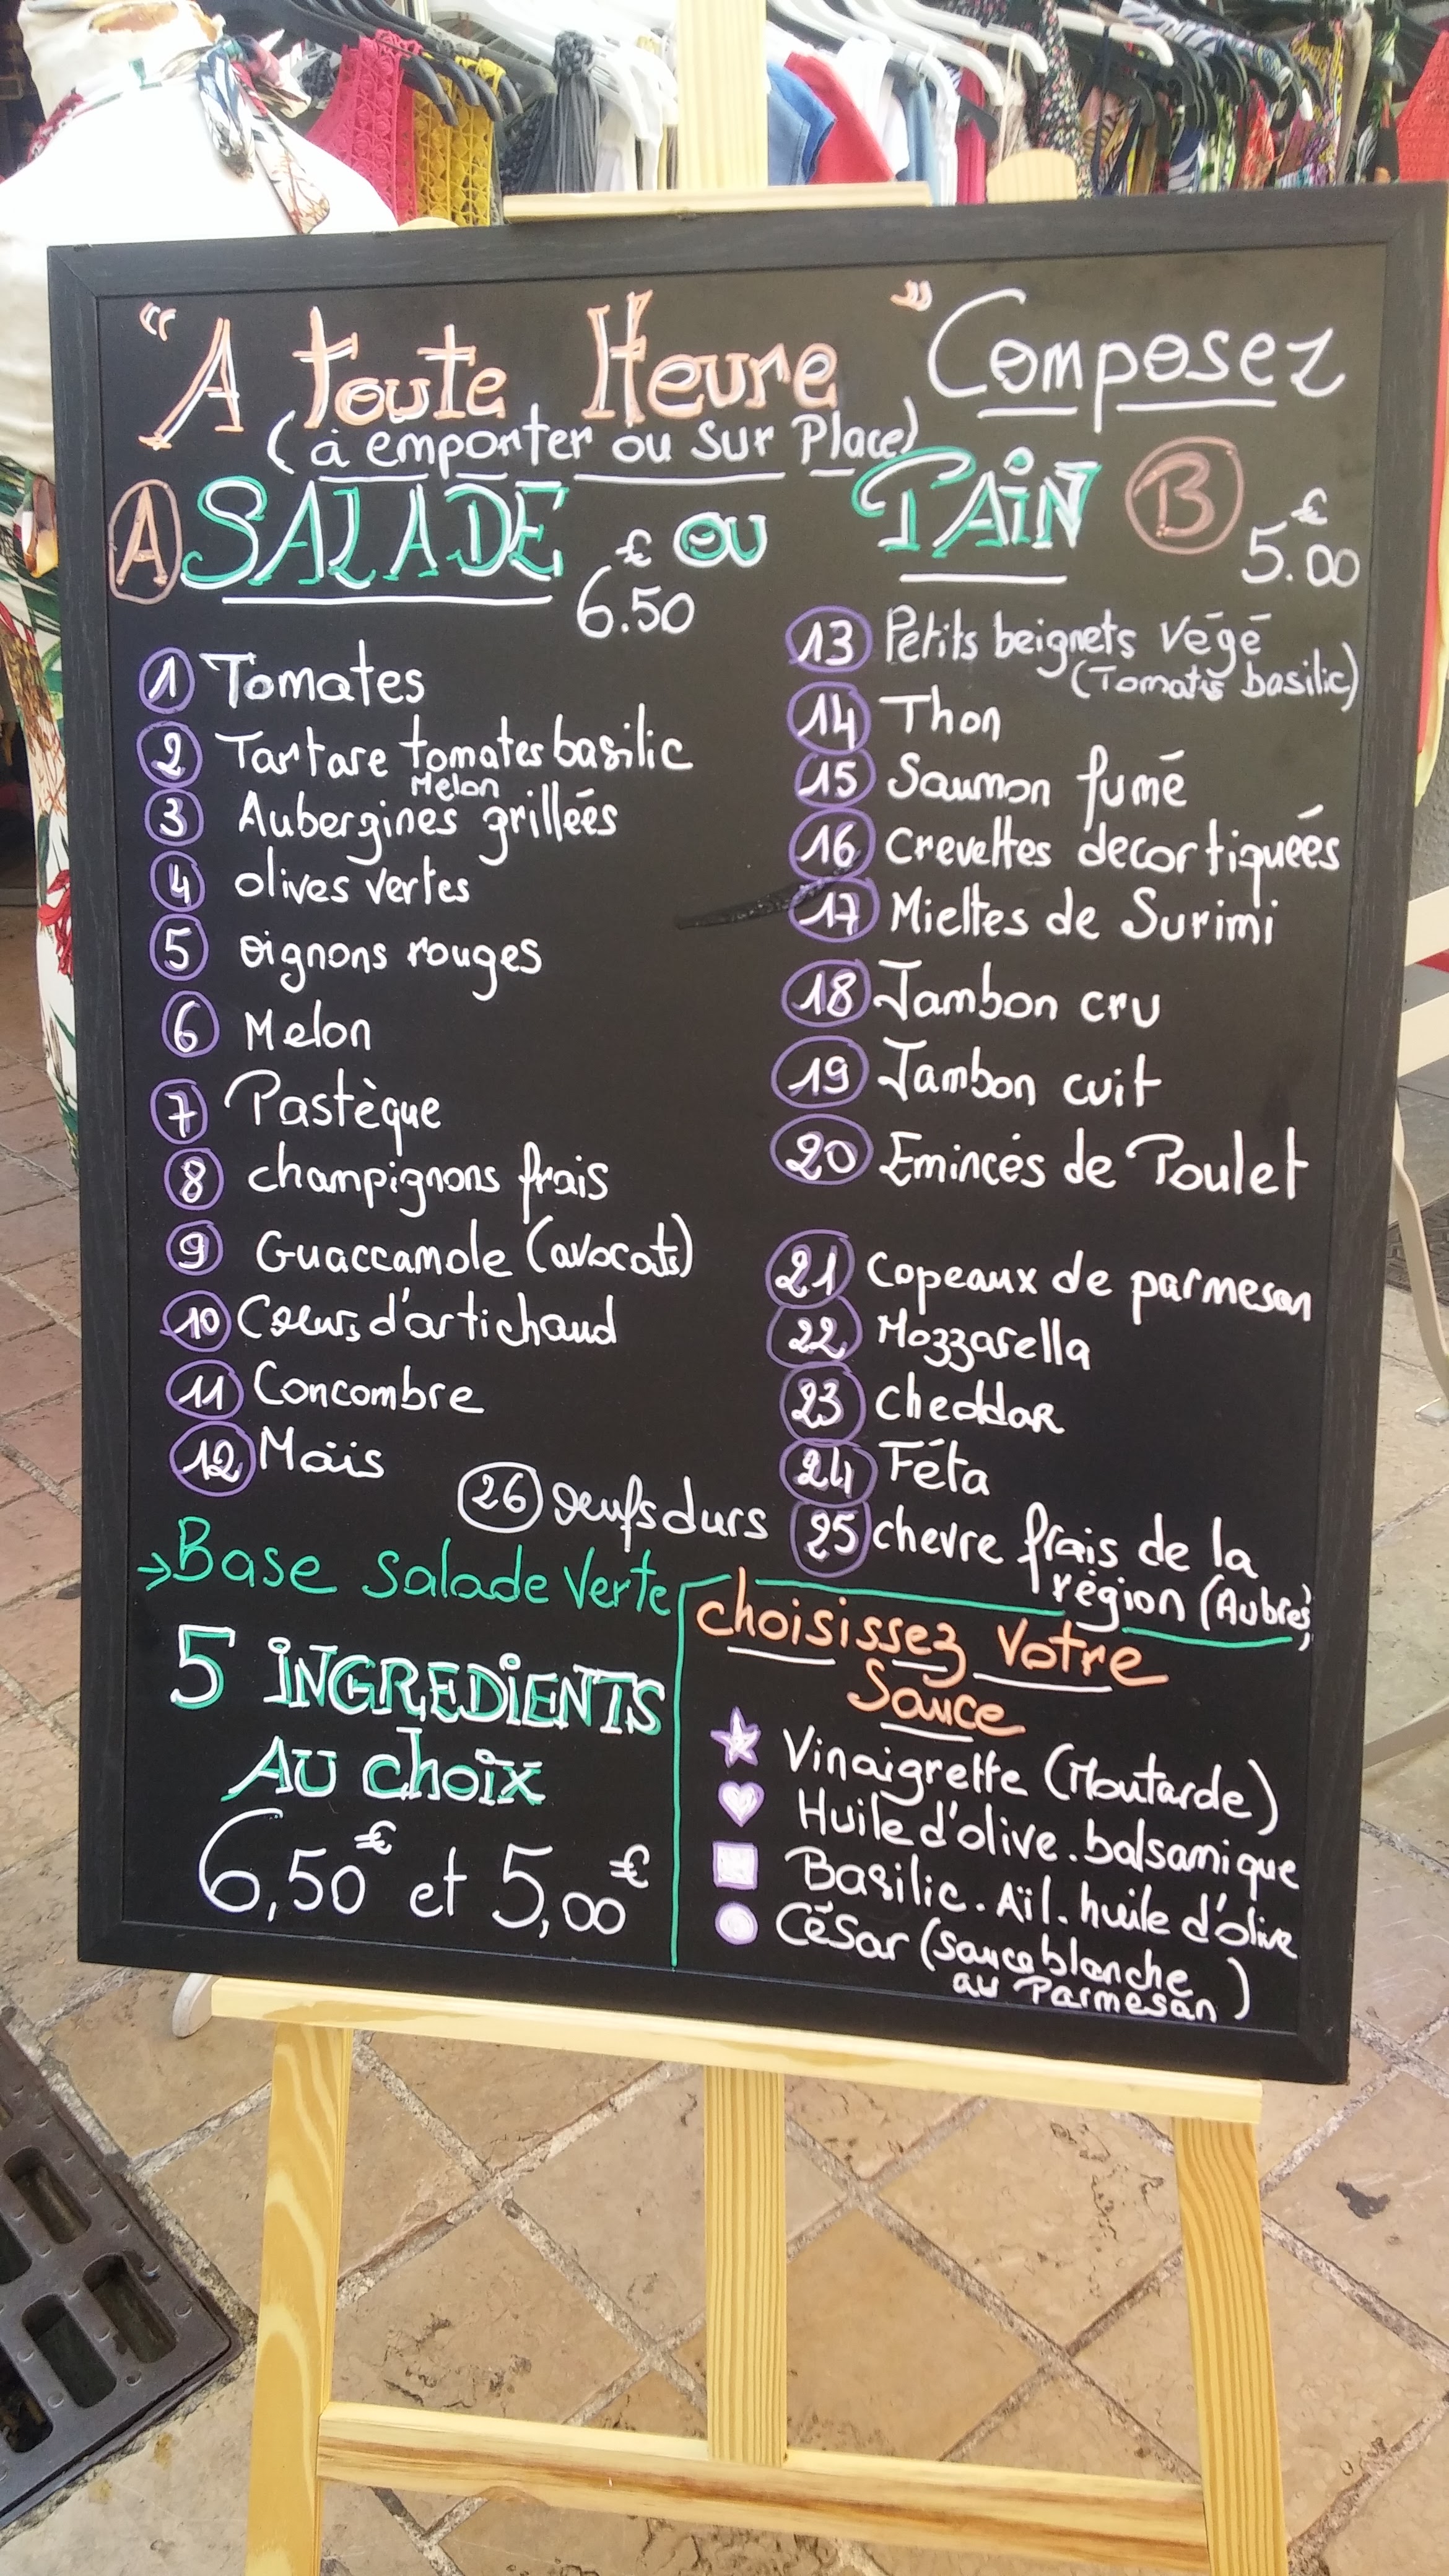 "A toute Heure" Composez
(à emporter ou sur Place)
A SALADE 6.50 € OU PAIN B 5.00 €
1 Tomates
2 Tartare tomates basilic
Melon
3 Aubergines grilleés
4 olives vertes
5 oignons rouges
6 Melon
7 Pastèque
8 champignons frais
9 Guaccamole (avocats)
10 Coeurs d'artichaud
11 Concombre
12 Maïs
26 oeufs durs
13 Petits beignets végé
(Tomates basilic)
14 Thon
15 Saumon fumé
16 Crevettes decortiqueés
17 Miettes de Surimi
18 Jambon cru
19 Jambon cuit
20 Emincés de Poulet
21 Copeaux de parmesan
22 Mozzarella
23 Cheddar
24 Féta
25 chevre frais de la
région (Aubres)
→ Base salade verte
5 INGREDIENTS
AU choix
6,50€ et 5,00€
choisissez votre
Sauce
★ Vinaigrette (Moutarde)
♥ Huile d'olive. balsamique
■ Basilic. Aïl. huile d'olive
● César (sauce blanche
au Parmesan)